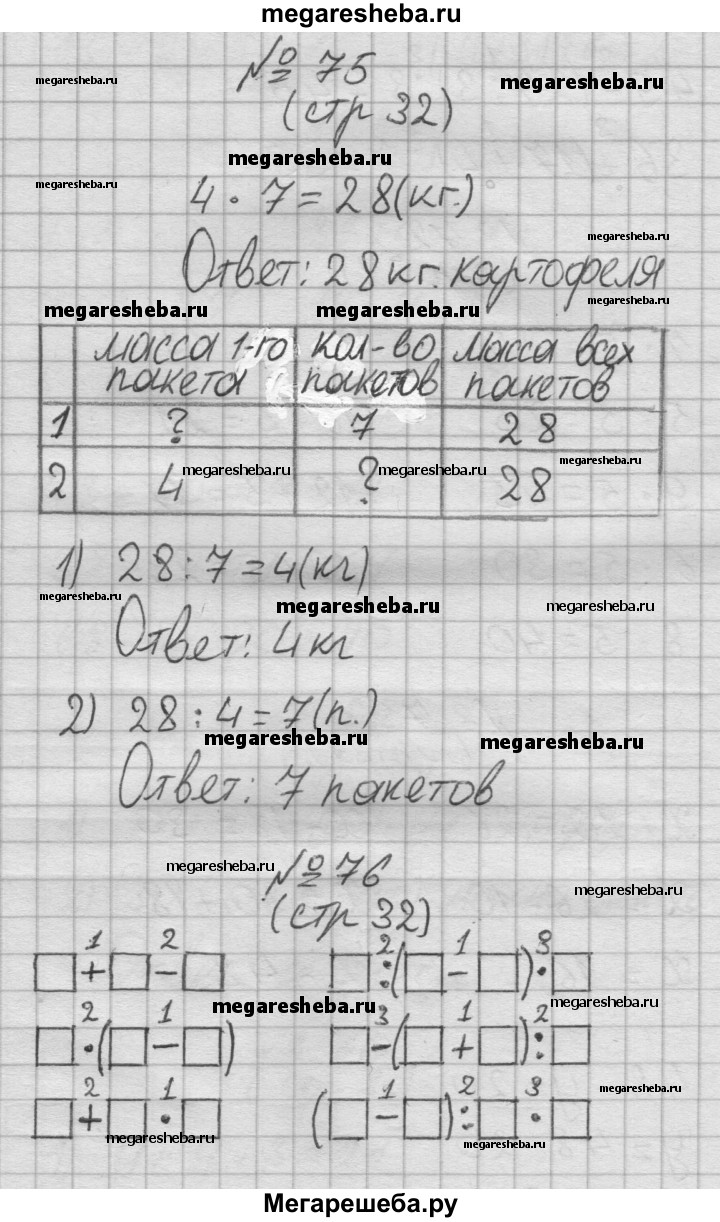 megaresheba.ru
№ 75
megaresheba.ru
megaresheba.ru
(стр 32)
megaresheba.ru
megaresheba.ru
4 · 7 = 28 (кг.)
megaresheba.ru
Ответ: 28 кг. картофеля
megaresheba.ru
megaresheba.ru megaresheba.ru
масса 1-го пакета кол-во пакетов масса всех пакетов
1 ? 7 28
megaresheba.ru
2 4 ? 28
megaresheba.ru megaresheba.ru
1) 28 : 7 = 4 (кг)
megaresheba.ru megaresheba.ru megaresheba.ru
Ответ: 4 кг
2) 28 : 4 = 7 (п.)
megaresheba.ru megaresheba.ru
Ответ: 7 пакетов
megaresheba.ru
№ 76
megaresheba.ru
(стр 32)
1 2 2 1 3
□ + □ − □ □ : (□ − □) · □
megaresheba.ru megaresheba.ru
2 1 3 1 2
□ · (□ − □) □ − (□ + □) : □
2 1 1 2 3
megaresheba.ru
□ + □ · □ (□ − □) : □ · □
megaresheba.ru megaresheba.ru
Мегарешеба.ру